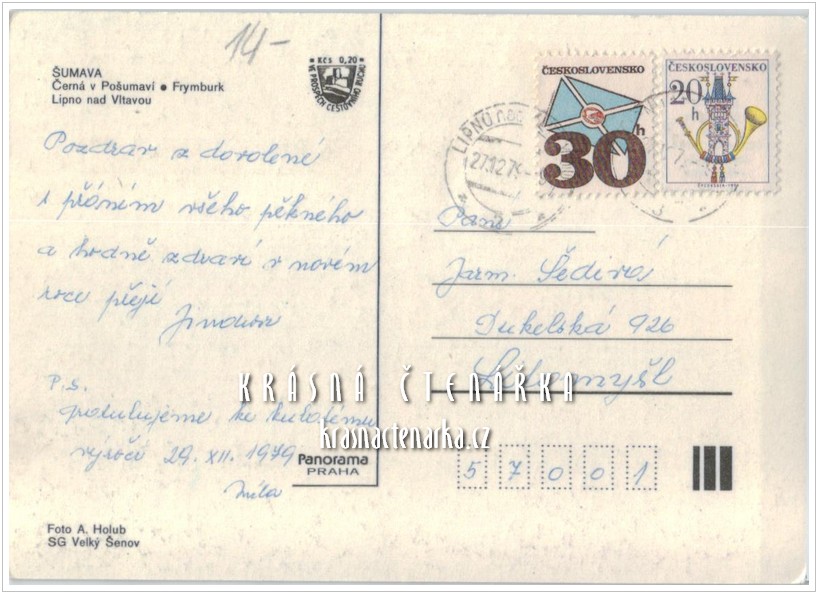 14-
ŠUMAVA
Černá v Pošumaví ● Frymburk
Lipno nad Vltavou
Kčs 0,20
VE PROSPĚCH CESTOVNÍHO RUCHU
ČESKOSLOVENSKO
30h
ČESKOSLOVENSKO
20h
LIPNO
27.12.79
Pozdrav z dovolené
s přáním všeho pěkného
a hodně zdraví v novém
roce přejí
P.S.
gratulujeme ke kulatému
výročí 29. XII. 1979
Míla
Paní
Jarm. Šedivá
Dukelská 926
Litomyšl
57001
KRÁSNÁ ČTENÁŘKA
krasnactenarka.cz
Panorama
PRAHA
Foto A. Holub
SG Velký Šenov